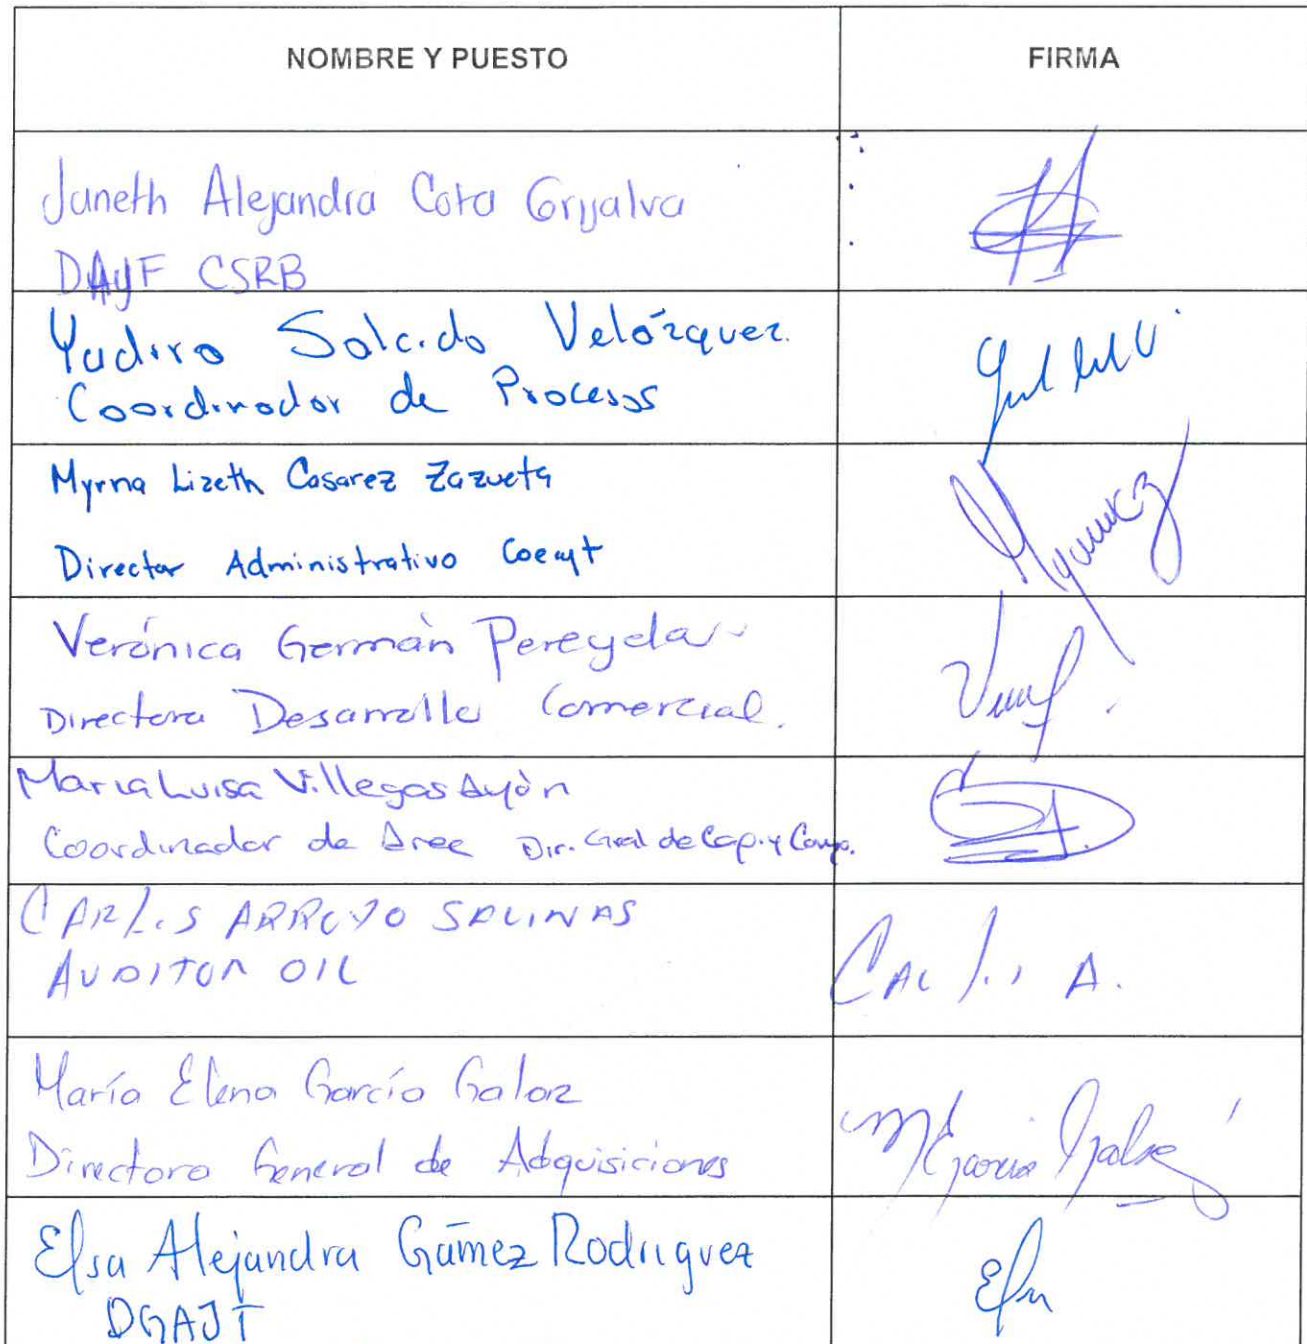 NOMBRE Y PUESTO FIRMA
Janeth Alejandra Cota Grijalva
DAyF CSRB
Yadira Salcido Velázquez.
Coordinador de Procesos
Myrna Lizeth Casarez Zazueta
Director Administrativo Coecyt
Verónica Germán Pereyda
Directora Desarrollo Comercial.
Maria Luisa Villegas Ayòn
Coordinador de Area Dir. Gral de Cap. y Comp.
CARLOS ARROYO SALINAS
AUDITOR OIC
Carlos A.
María Elena García Galaz
Directora General de Adquisiciones
MEGarcia Galaz
Elsa Alejandra Gámez Rodriguez
DGAJT
Elsa